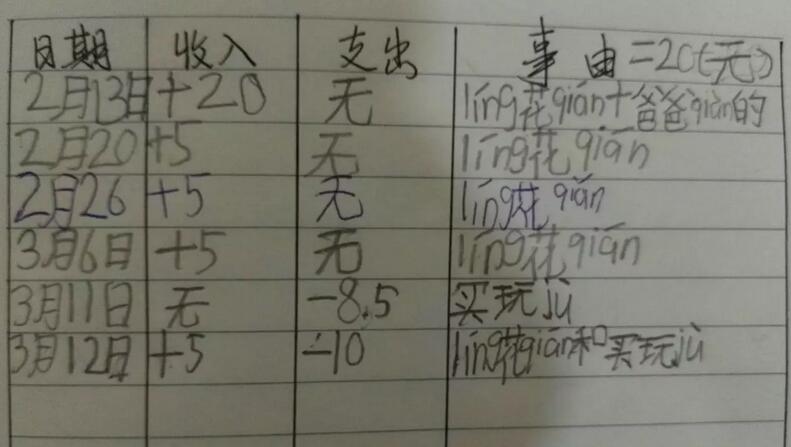 日期 收入 支出 事由=20(元)
2月13日 +20 无 líng花qián+爸爸qián的
2月20 +5 无 líng花qián
2月26 +5 无 líng花qián
3月6日 +5 无 líng花qián
3月11日 无 -8.5 买玩jù
3月12日 +5 -10 líng花qián和买玩jù